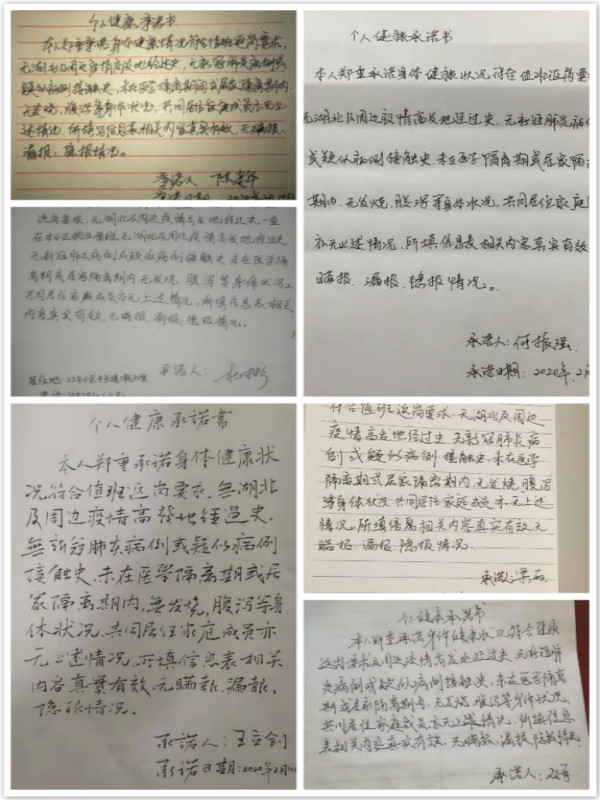 个人健康承诺书
本人郑重承诺身体健康情况符合值班返岗要求,
无湖北及周边疫情高发地经过史,无新冠肺炎病例或
疑似病例接触史,未在医学隔离期或居家隔离期内,
无发烧、腹泻等身体状况,共同居住家庭成员亦无上
述情况,所填写信息表相关内容真实有效,无瞒报、
漏报、隐报情况。
承诺人
个人健康承诺书
本人郑重承诺身体健康状况符合值班返岗要
无湖北及周边疫情高发地经过史,无新冠肺炎病
或疑似病例接触史,未在医学隔离期或居家隔
期内,无发烧、腹泻等身体状况,共同居住家庭
亦无上述情况,所填信息表相关内容真实有效
瞒报、漏报、隐报情况。
承诺人:何振强
承诺日期:2020年2月
返岗要求,无湖北及周边疫情高发地经过史,
无湖北及周边疫情高发地经过史
无新冠肺炎病例或疑似病例接触史,未在医学隔
离期或居家隔离期内,无发烧、腹泻等身体状况,
共同居住家庭成员亦无上述情况,所填信息表相关
内容真实有效,无瞒报、漏报、隐报情况。
承诺人:
个人健康承诺書
本人郑重承诺身体健康状
况符合值班返岗要求,無湖北
及周边疫情高發地經過史,
無新冠肺炎病例或疑似病例
接触史,未在医學隔离期或居
家隔离期内,無发烧,腹泻等身
体状况,共同居住家庭成员亦
无上述情况,所填信息表相关
内容真實有效,无瞞報、漏報,
隐报情况。
承諾人:王立剑
承諾日期:2020年2月
符合值班返岗要求,无湖北及周边
疫情高发地经过史,无新冠肺炎病
例或疑似病例接触史,未在医学
隔离期或居家隔离期内,无发烧、腹泻
等身体状况,共同居住家庭成员亦无上述
情况,所填信息相关内容真实有效,无
瞒报、漏报、隐报情况.
承诺人:梁
个人健康承诺书
本人郑重承诺身体健康状况符合值班
返岗要求及周边疫情高发地经过史,无新冠肺
炎病例或疑似病例接触史,未在医学隔离
期或居家隔离期内,无发烧、腹泻等身体状况,
共同居住家庭成员亦无上述情况,所填信息
表相关内容真实有效,无瞒报、漏报、隐报情况.
承诺人:邓